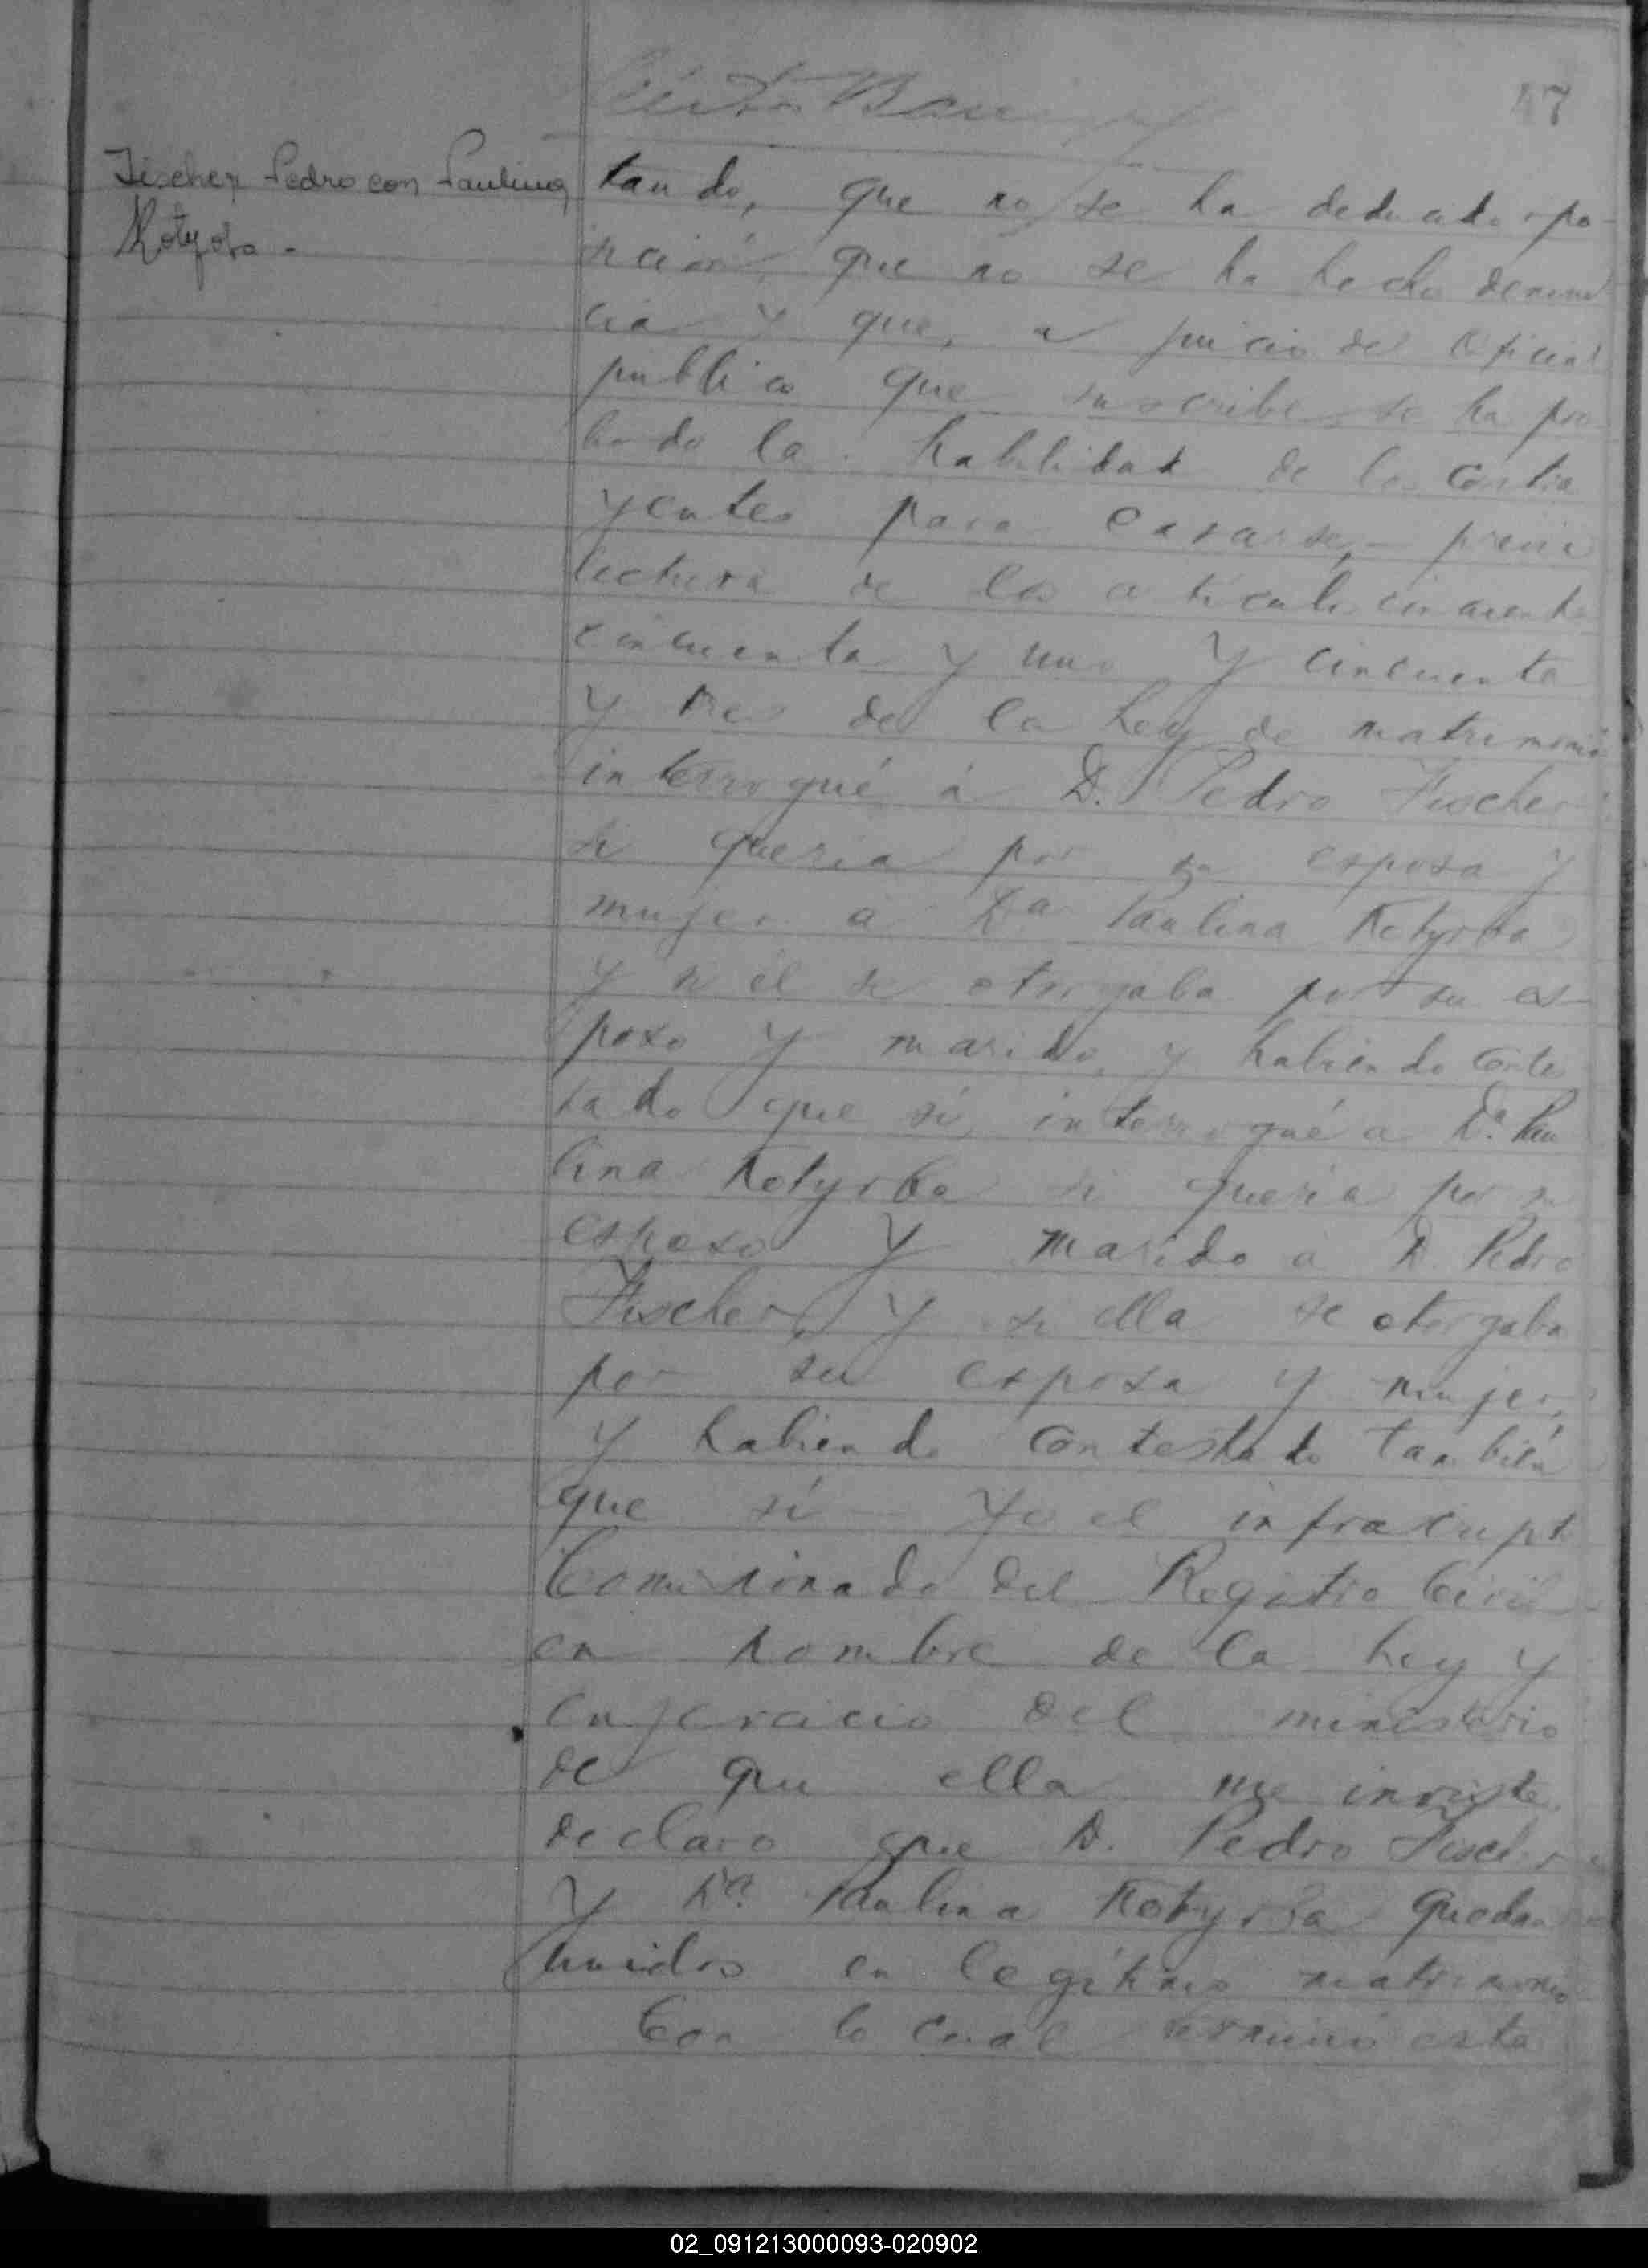 47
Fischer Pedro con Paulina
Kotyrba.-
tando, que no se ha deducido opo-
sición, que no se ha hecho denun
cia y que, a juicio del Oficial
publico que suscribe, se ha pro
bado la habilidad de los contra
yentes para casarse,- previa
lectura de los articulos cincuenta
cincuenta y uno y cincuenta
y tres de la Ley de matrimonio
interrogué á D. Pedro Fischer
si queria por su esposa y
mujer a Da Paulina Kotyrba
y si él se otorgaba por su es-
poso y marido, y habiendo contes
tado que sí, interrogué a Da. Pau
lina Kotyrba si queria por su
esposo y marido a D. Pedro
Fischer, y si ella se otorgaba
por su esposa y mujer,
y habiendo contestado también
que sí Yo el infrascripto
Comisionado del Registro Civil
en nombre de la Ley y
en del ministerio
de que ella me inviste,
declaro que D. Pedro Fischer
y Da. Paulina Kotyrba quedan
unidos en legítimo matrimonio
Con lo cual terminó este
02_091213000093-020902